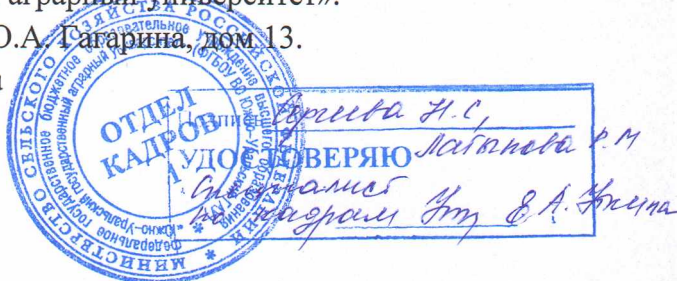 аграрный университет».
Ю.А. Гагарина, дом 13.
МИНИСТЕРСТВО СЕЛЬСКОГО ХОЗЯЙСТВА РОССИЙСКОЙ ФЕДЕРАЦИИ *
Федеральное государственное бюджетное образовательное учреждение высшего образования
«Южно-Уральский государственный аграрный университет» (ФГБОУ ВО Южно-Уральский ГАУ)
ОТДЕЛ
КАДРОВ
1
Сергеева Н.С,
УДОСТОВЕРЯЮ Латыпова Р.М
Специалист
по кадрам